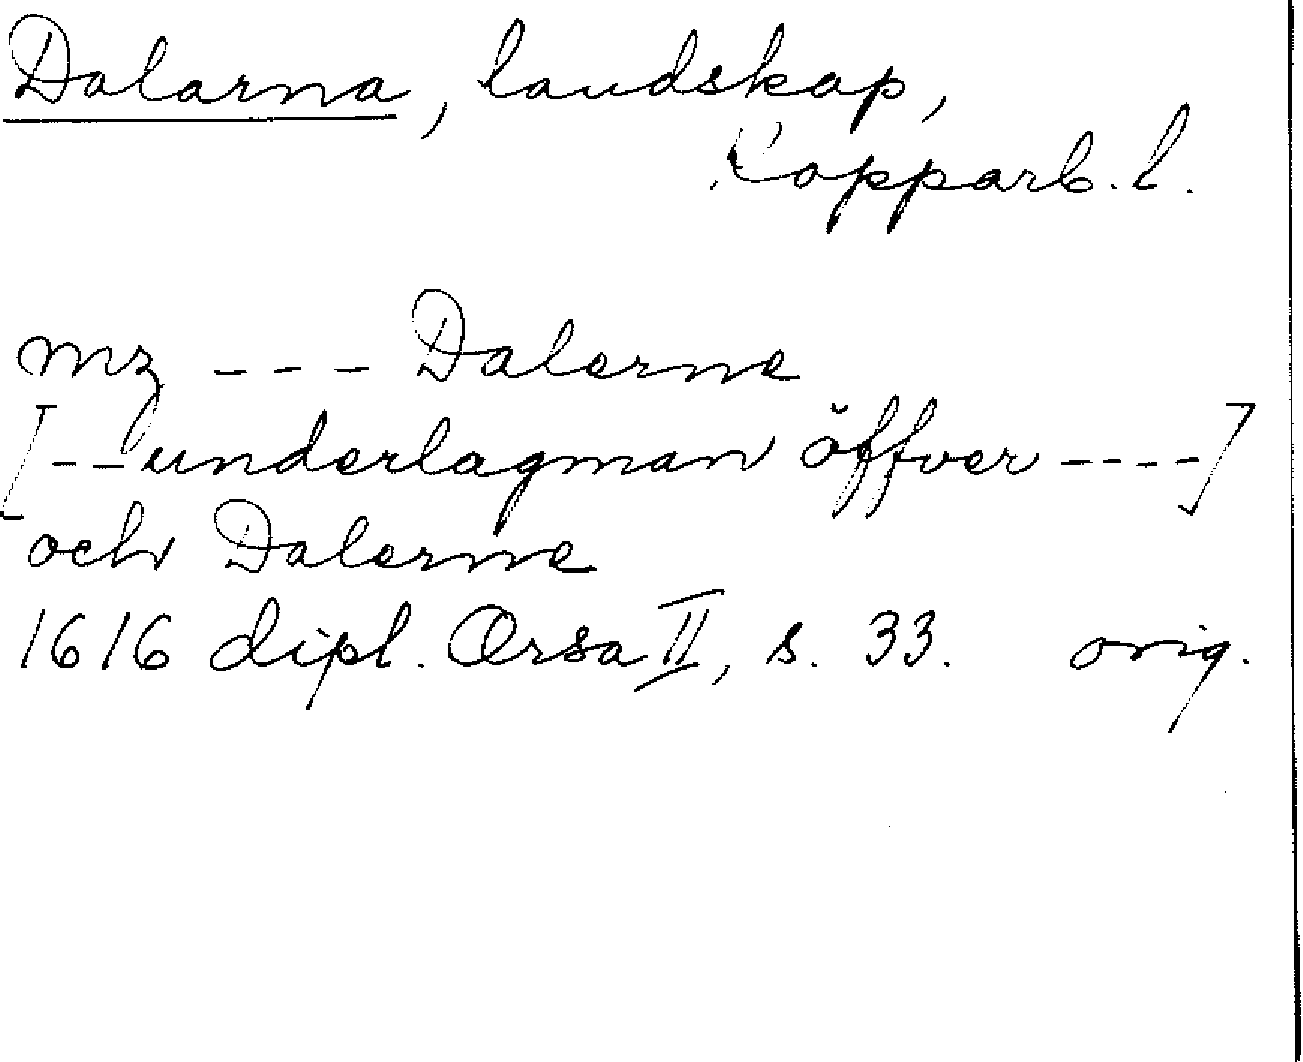 Dalarna, landskap,
Kopparb. l.
mz --- Dalerne
[--underlagman öffver ----]
och Dalerne
1616 dipl. Orsa II, s. 33. orig.